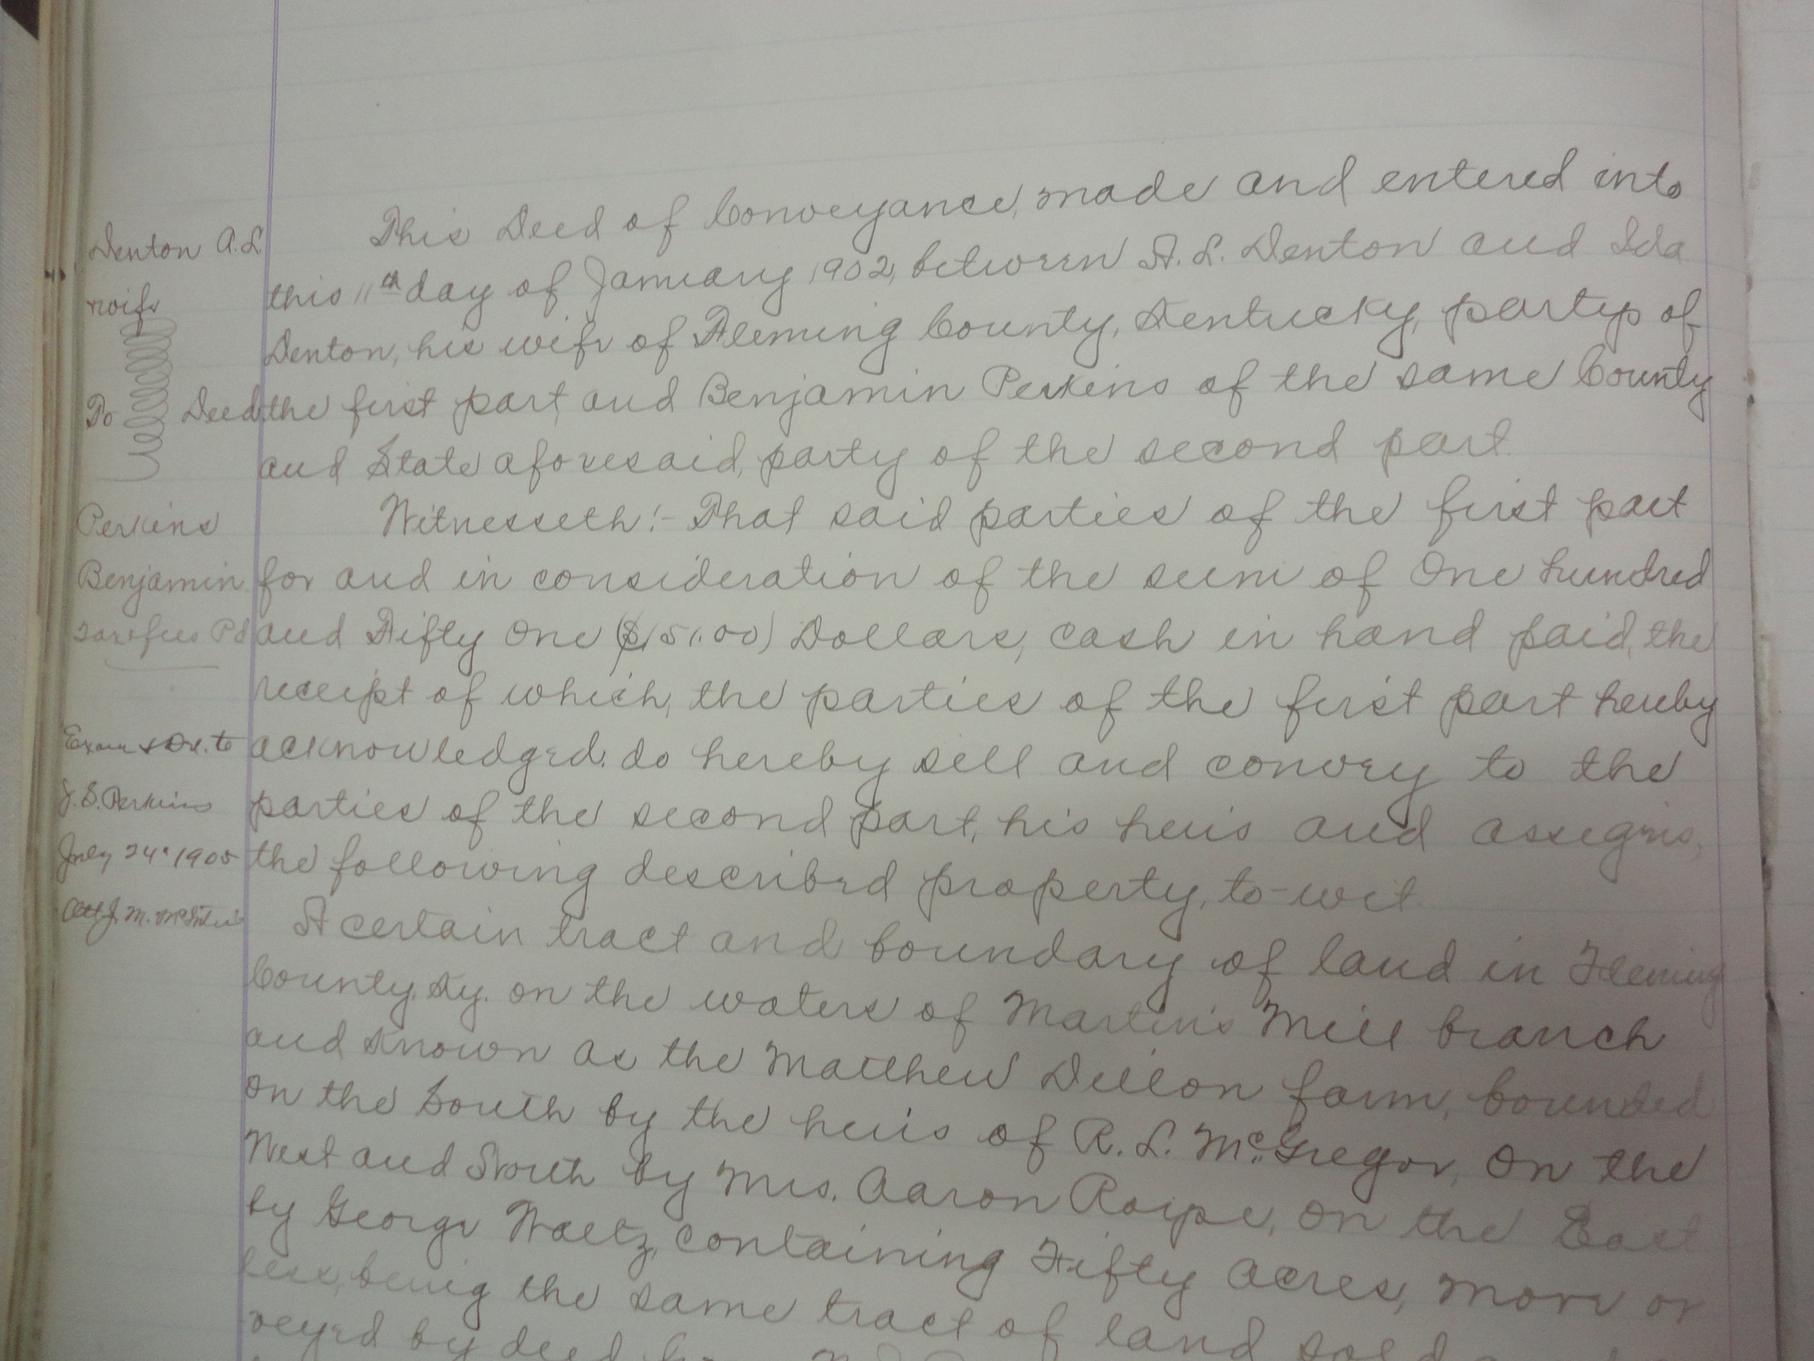 Denton A.L.
wife
To Deed
Perkins
Benjamin
Tax & fees Pd
Exam & Del. to
J. S. Perkins
July 24" 1905
Att J. M. McIntire
This Deed of Conveyance, made and entered into
this 11th day of January 1902, between A. L. Denton and Ida
Denton, his wife of Fleming County, Kentucky, partys of
the first part, and Benjamin Perkins of the same County
and State aforesaid, party of the second part.
Witnesseth:- That said parties of the first part
for and in consideration of the sum of One hundred
and Fifty One ($151.00) Dollars, cash in hand paid, the
receipt of which, the parties of the first part hereby
acknowledged. do hereby sell and convey to the
parties of the second part, his heirs and assigns,
the following described property, to-wit.
A certain tract and boundary of land in Fleming
County, Ky. on the waters of Martin's Mill branch
and known as the Matthew Dillon farm, bounded
on the South by the heirs of R. L. McGregor, On the
West and North by Mrs. Aaron Roype, on the East
by George Waltz, containing Fifty Acres, more or
less, being the same tract of land sold
veyed by deed